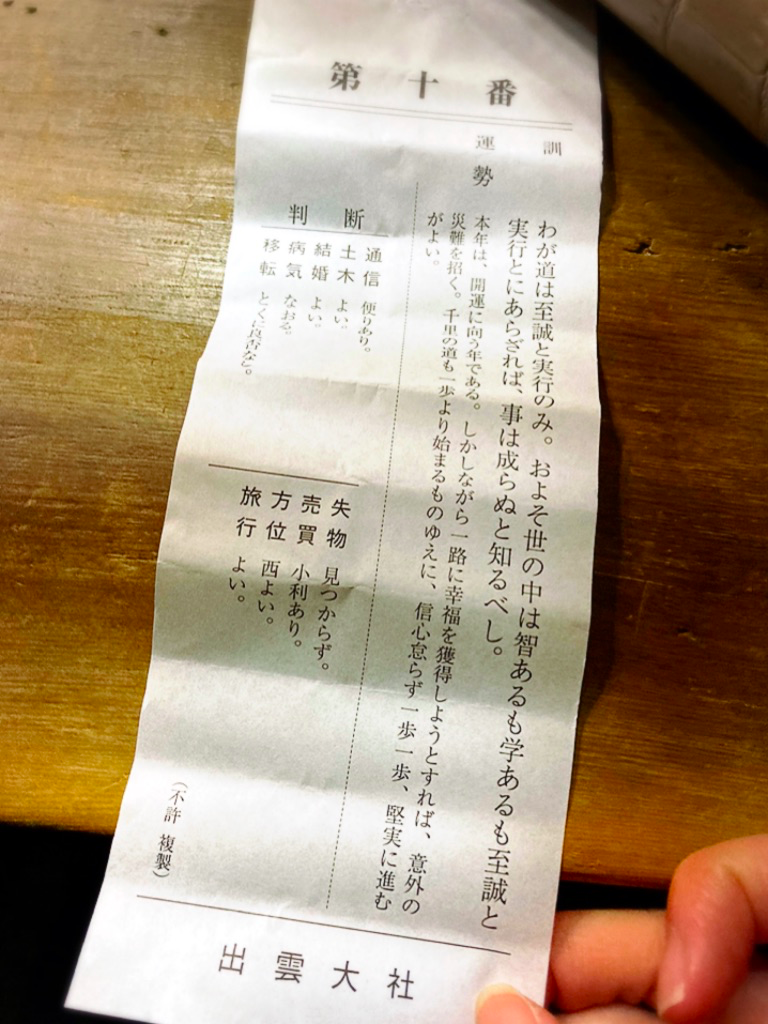 第十番
訓
わが道は至誠と実行のみ。およそ世の中は智あるも学あるも至誠と
実行とにあらざれば、事は成らぬと知るべし。
運勢
本年は、開運に向う年である。しかしながら一路に幸福を獲得しようとすれば、意外の
災難を招く。千里の道も一歩より始まるものゆえに、信心怠らず一歩一歩、堅実に進む
がよい。
判断
通信 便りあり。
土木 よい。
結婚 よい。
病気 なおる。
移転 とくに良否なし。
失物 見つからず。
売買 小利あり。
方位 西よい。
旅行 よい。
(不許 複製)
出雲大社